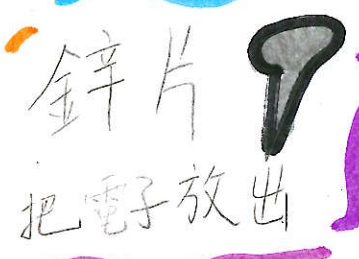 鋅片
把電子放出